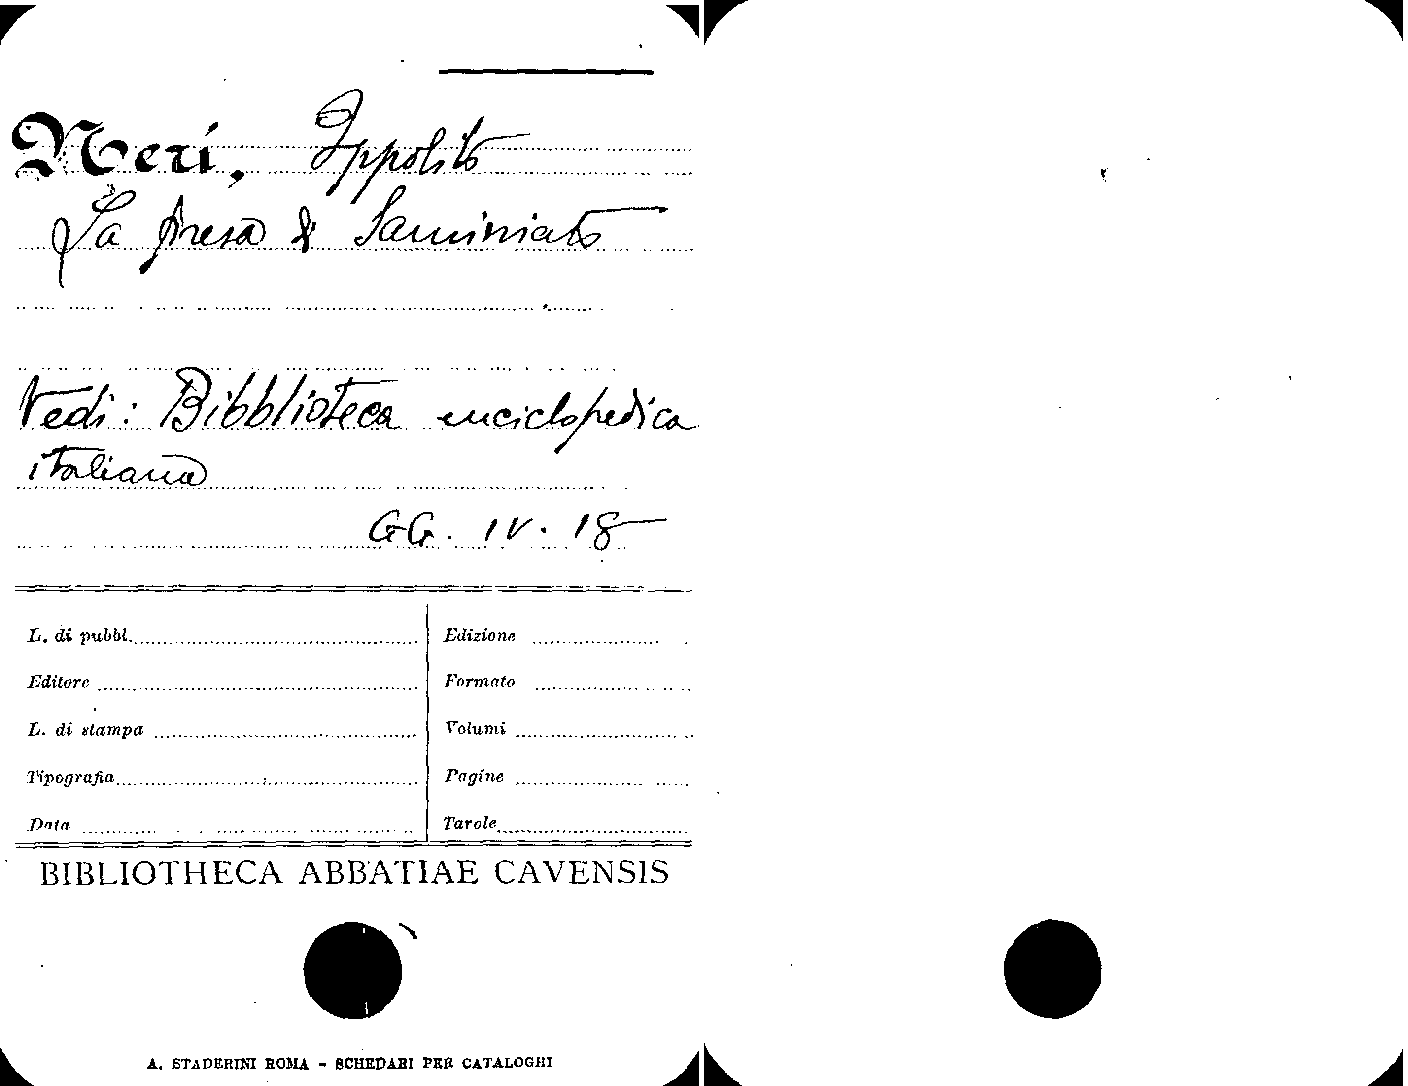 Neri, Ippolito
La presa di Saminiato
Vedi: Bibblioteca enciclopedica
italiana
GG. IV. 18
L. di pubbl.
Editore
L. di stampa
Tipografia
Data
Edizione
Formato
Volumi
Pagine
Tavole
BIBLIOTHECA ABBATIAE CAVENSIS
A. STADERINI ROMA - SCHEDARI PER CATALOGHI